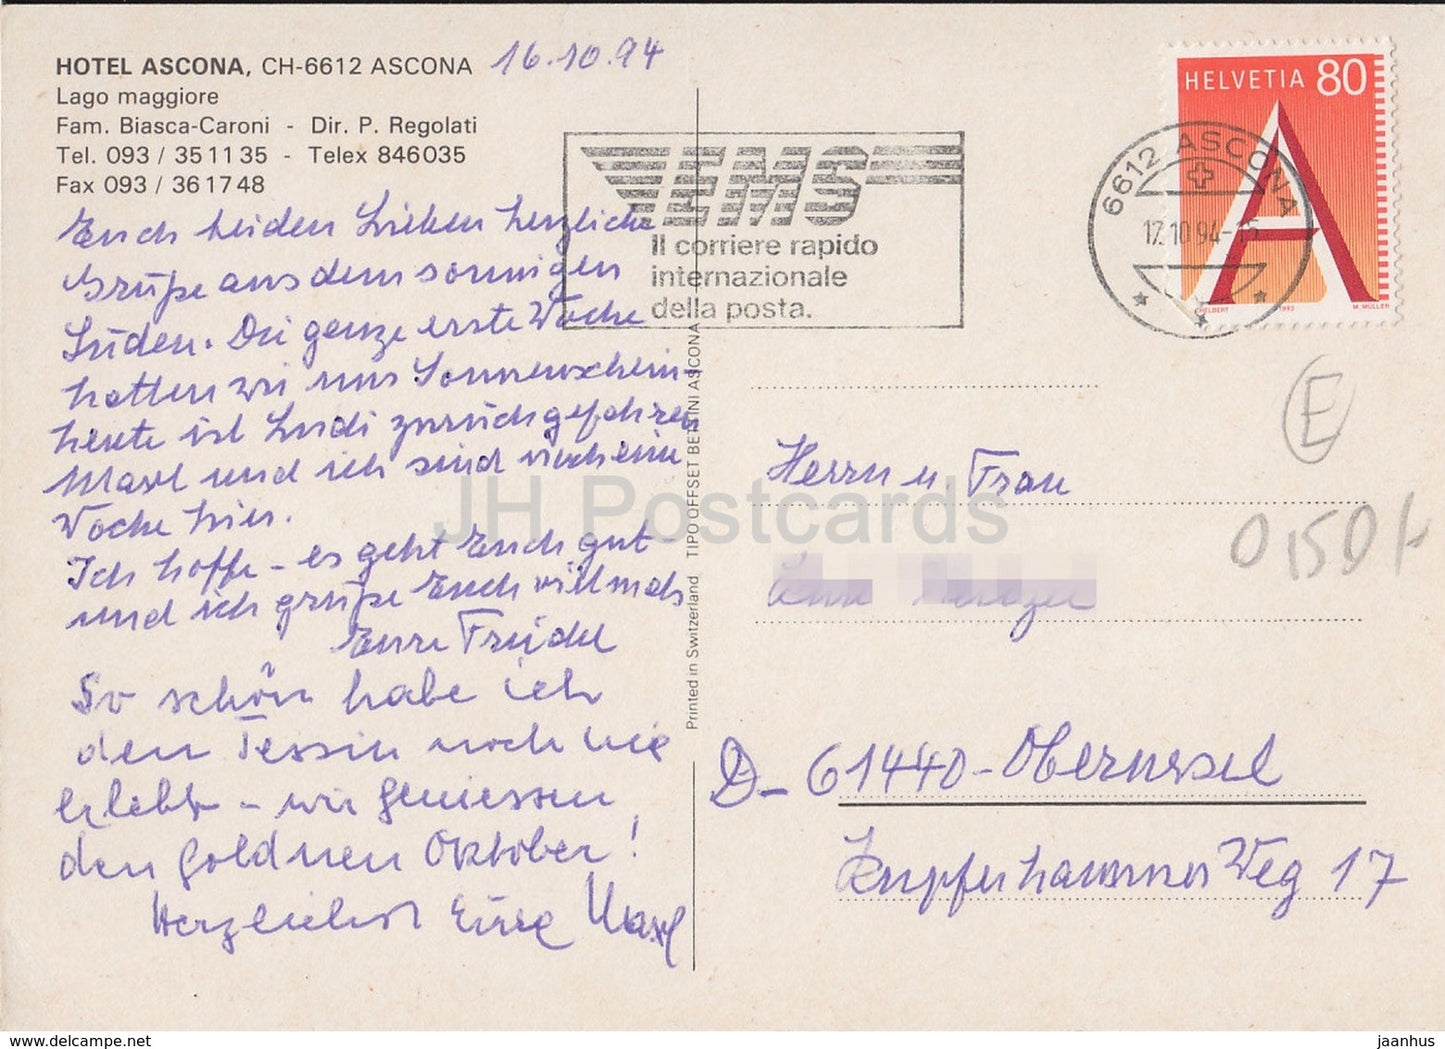 HOTEL ASCONA, CH-6612 ASCONA 16.10.94
Lago maggiore
Fam. Biasca-Caroni - Dir. P. Regolati
Tel. 093 / 35 11 35 - Telex 846035
Fax 093 / 36 17 48
Euch beiden Lieben herzliche
Grüße aus dem sonnigen
Süden. Die ganze erste Woche
hatten wir nur Sonnenschein -
heute ist Ludi zurückgefahren
Maxl und ich sind noch eine
Woche hier.
Ich hoffe - es geht Euch gut -
und ich grüße Euch vielmals
Eure Friedel
So schön habe ich
den Tessin noch nie
erlebt - wir geniessen
den goldnen Oktober!
Herzlichst Eure Maxl
EMS
Il corriere rapido
internazionale
della posta.
6612 ASCONA
17.10.94-15
HELVETIA 80
A
1993
M. MÜLLER
E
0,50
Printed in Switzerland TIPO OFFSET BETTINI ASCONA
Herrn u. Frau
D-61440-Oberursel
Kupferhammer Weg 17
JH Postcards
www.hippostcard.com
jaanhus